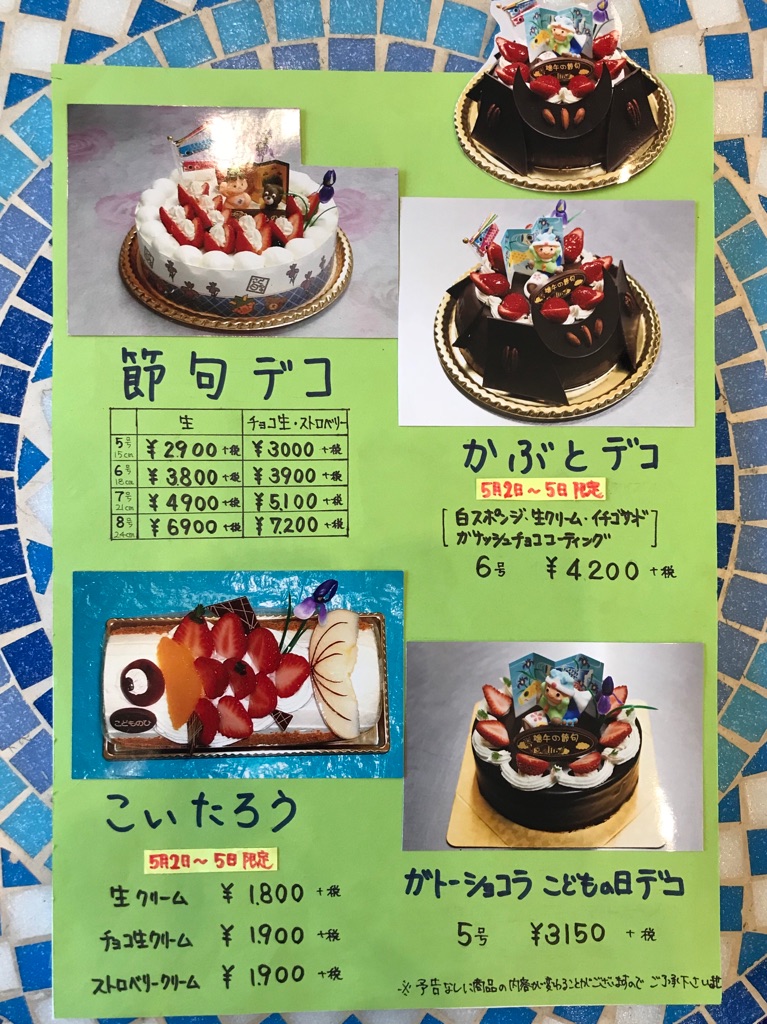 端午の節句
端午の節句
節句デコ
生 チョコ生・ストロベリー
5号 15cm ¥2900+税 ¥3000+税
6号 18cm ¥3,800+税 ¥3900+税
7号 21cm ¥4900+税 ¥5,100+税
8号 24cm ¥6900+税 ¥7,200+税
かぶとデコ
5月2日〜5日限定
[白スポンジ、生クリーム・イチゴサンド
ガナッシュチョココーティング]
6号 ¥4200+税
こどものひ
こいたろう
5月2日〜5日限定
生クリーム ¥1,800+税
チョコ生クリーム ¥1,900+税
ストロベリークリーム ¥1,900+税
端午の節句
ガトーショコラ こどもの日デコ
5号 ¥3150+税
※予告なしに商品の内容が変わることがございますので ご了承下さいませ